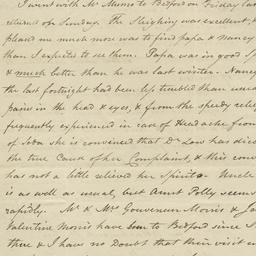 I went with Mr Munro to Bedford on Friday last
returned on Sunday. The Sleighing was excellent, &
pleased me much more was to find papa & Nancy
than I expected to see them. Papa was in good
& much better than he was last winter. Nancy
the last fortnight had been less troubled than usual
pain in the head & eyes, & from the speedy relief
frequently experienced in case of Headache from
of Soda she is convinced that Dr Low has disco
the true Cause of her Complaint, & this conv
has not a little relieved her Spirits. Uncle
is as well as usual, but Aunt Polly seems
rapidly. Mr & Mrs Gouverneur Morris & Ja
Valentine Morris have been to Bedford since I
there & I have no Doubt that their visit